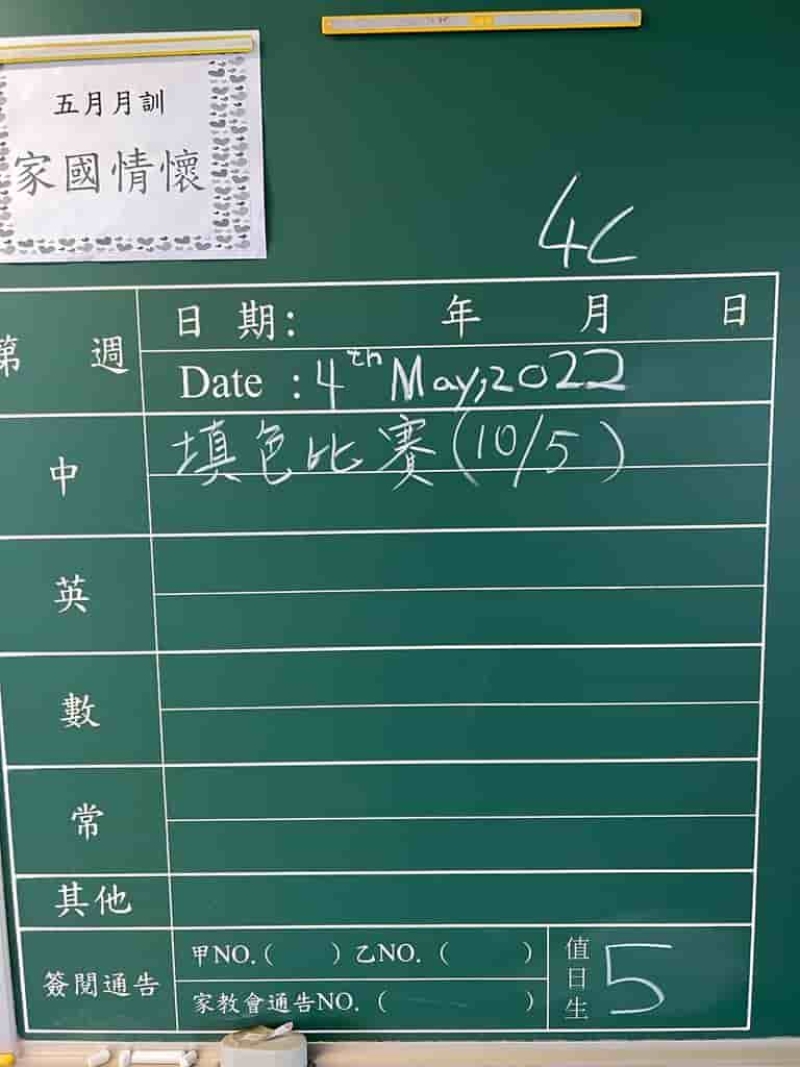 五月月訓
家國情懷
4C
第 週
日 期： 年 月 日
Date : 4th May, 2022
中
填色比賽(10/5)
英
數
常
其他
簽閱通告
甲NO. ( ) 乙NO. ( )
家教會通告NO. ( )
值日生
5